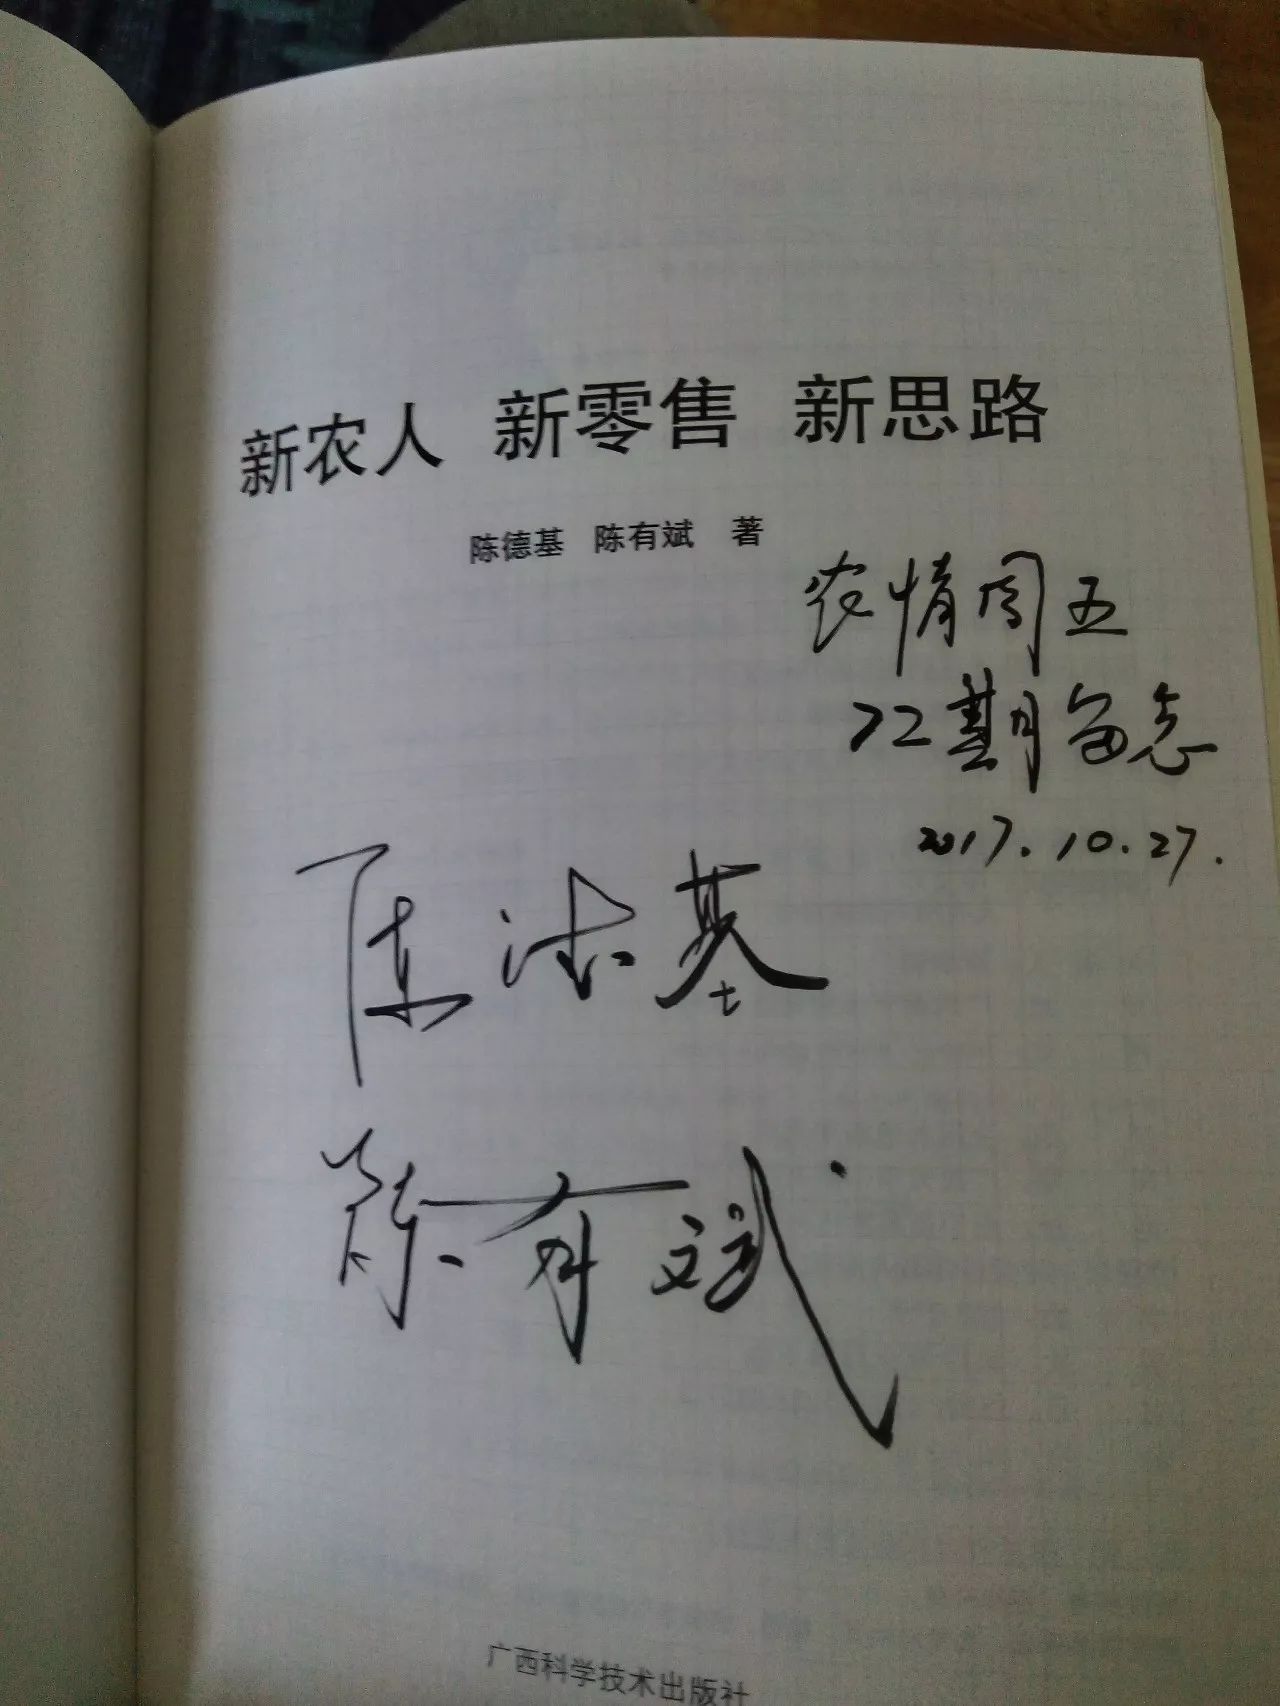 新农人 新零售 新思路
陈德基 陈有斌 著
农情周五
72期留志
2017.10.27.
陈德基
陈有斌
广西科学技术出版社